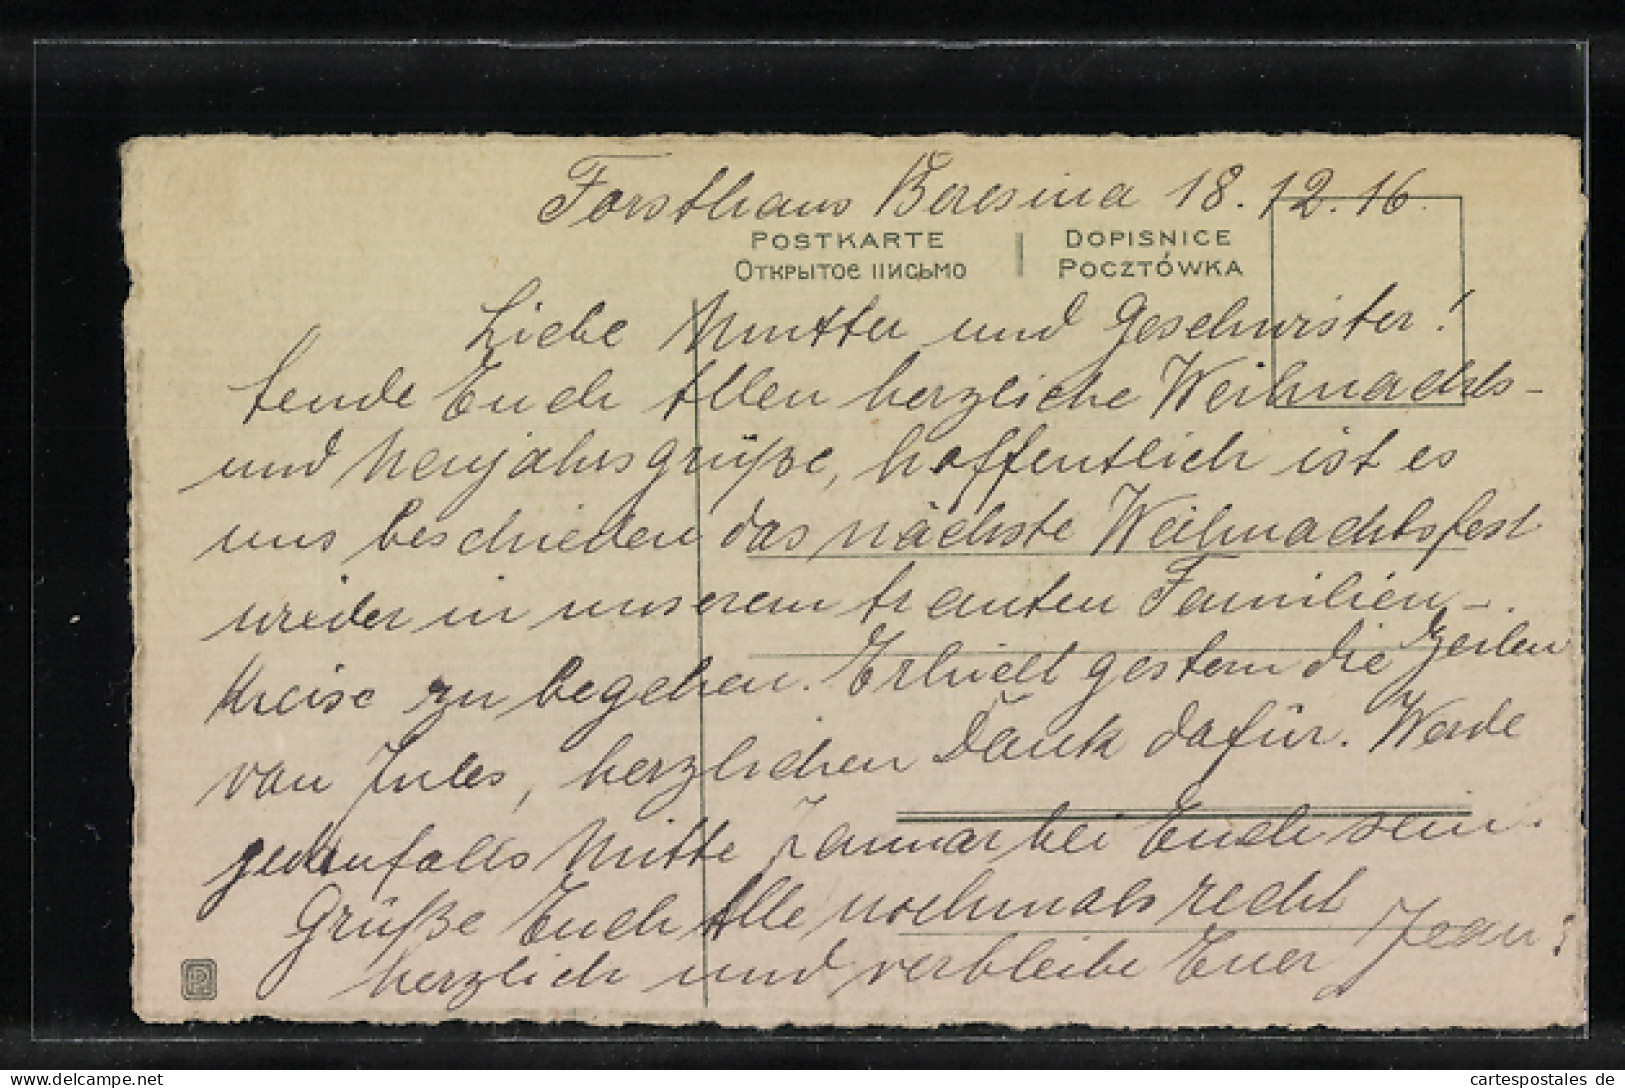 Forsthaus Beresina 18.12.16.
POSTKARTE
Открытое письмо
DOPISNICE
POCZTÓWKA
Liebe Mutter und Geschwister!
Sende Euch Allen herzliche Weihnachts-
und Neujahrsgrüße, hoffentlich ist es
uns beschieden das nächste Weihnachtsfest
wieder in unserem trauten Familien-
Kreise zu begehen. Erhielt gestern die Zeilen
von Jules, herzlichen Dank dafür. Werde
jedenfalls Mitte Januar bei Euch sein.
Grüße Euch Alle nochmals recht
herzlich und verbleibe Euer Jean
akpool GmbH
cartespostales de